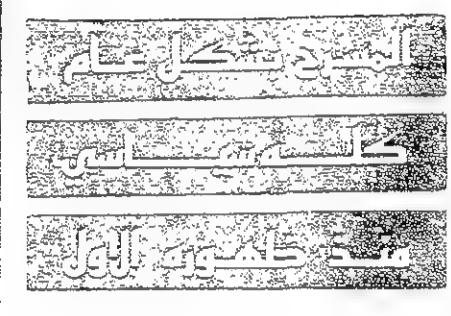 المسرح بشكل عام
كله سياسي
منذ ظهوره الأول